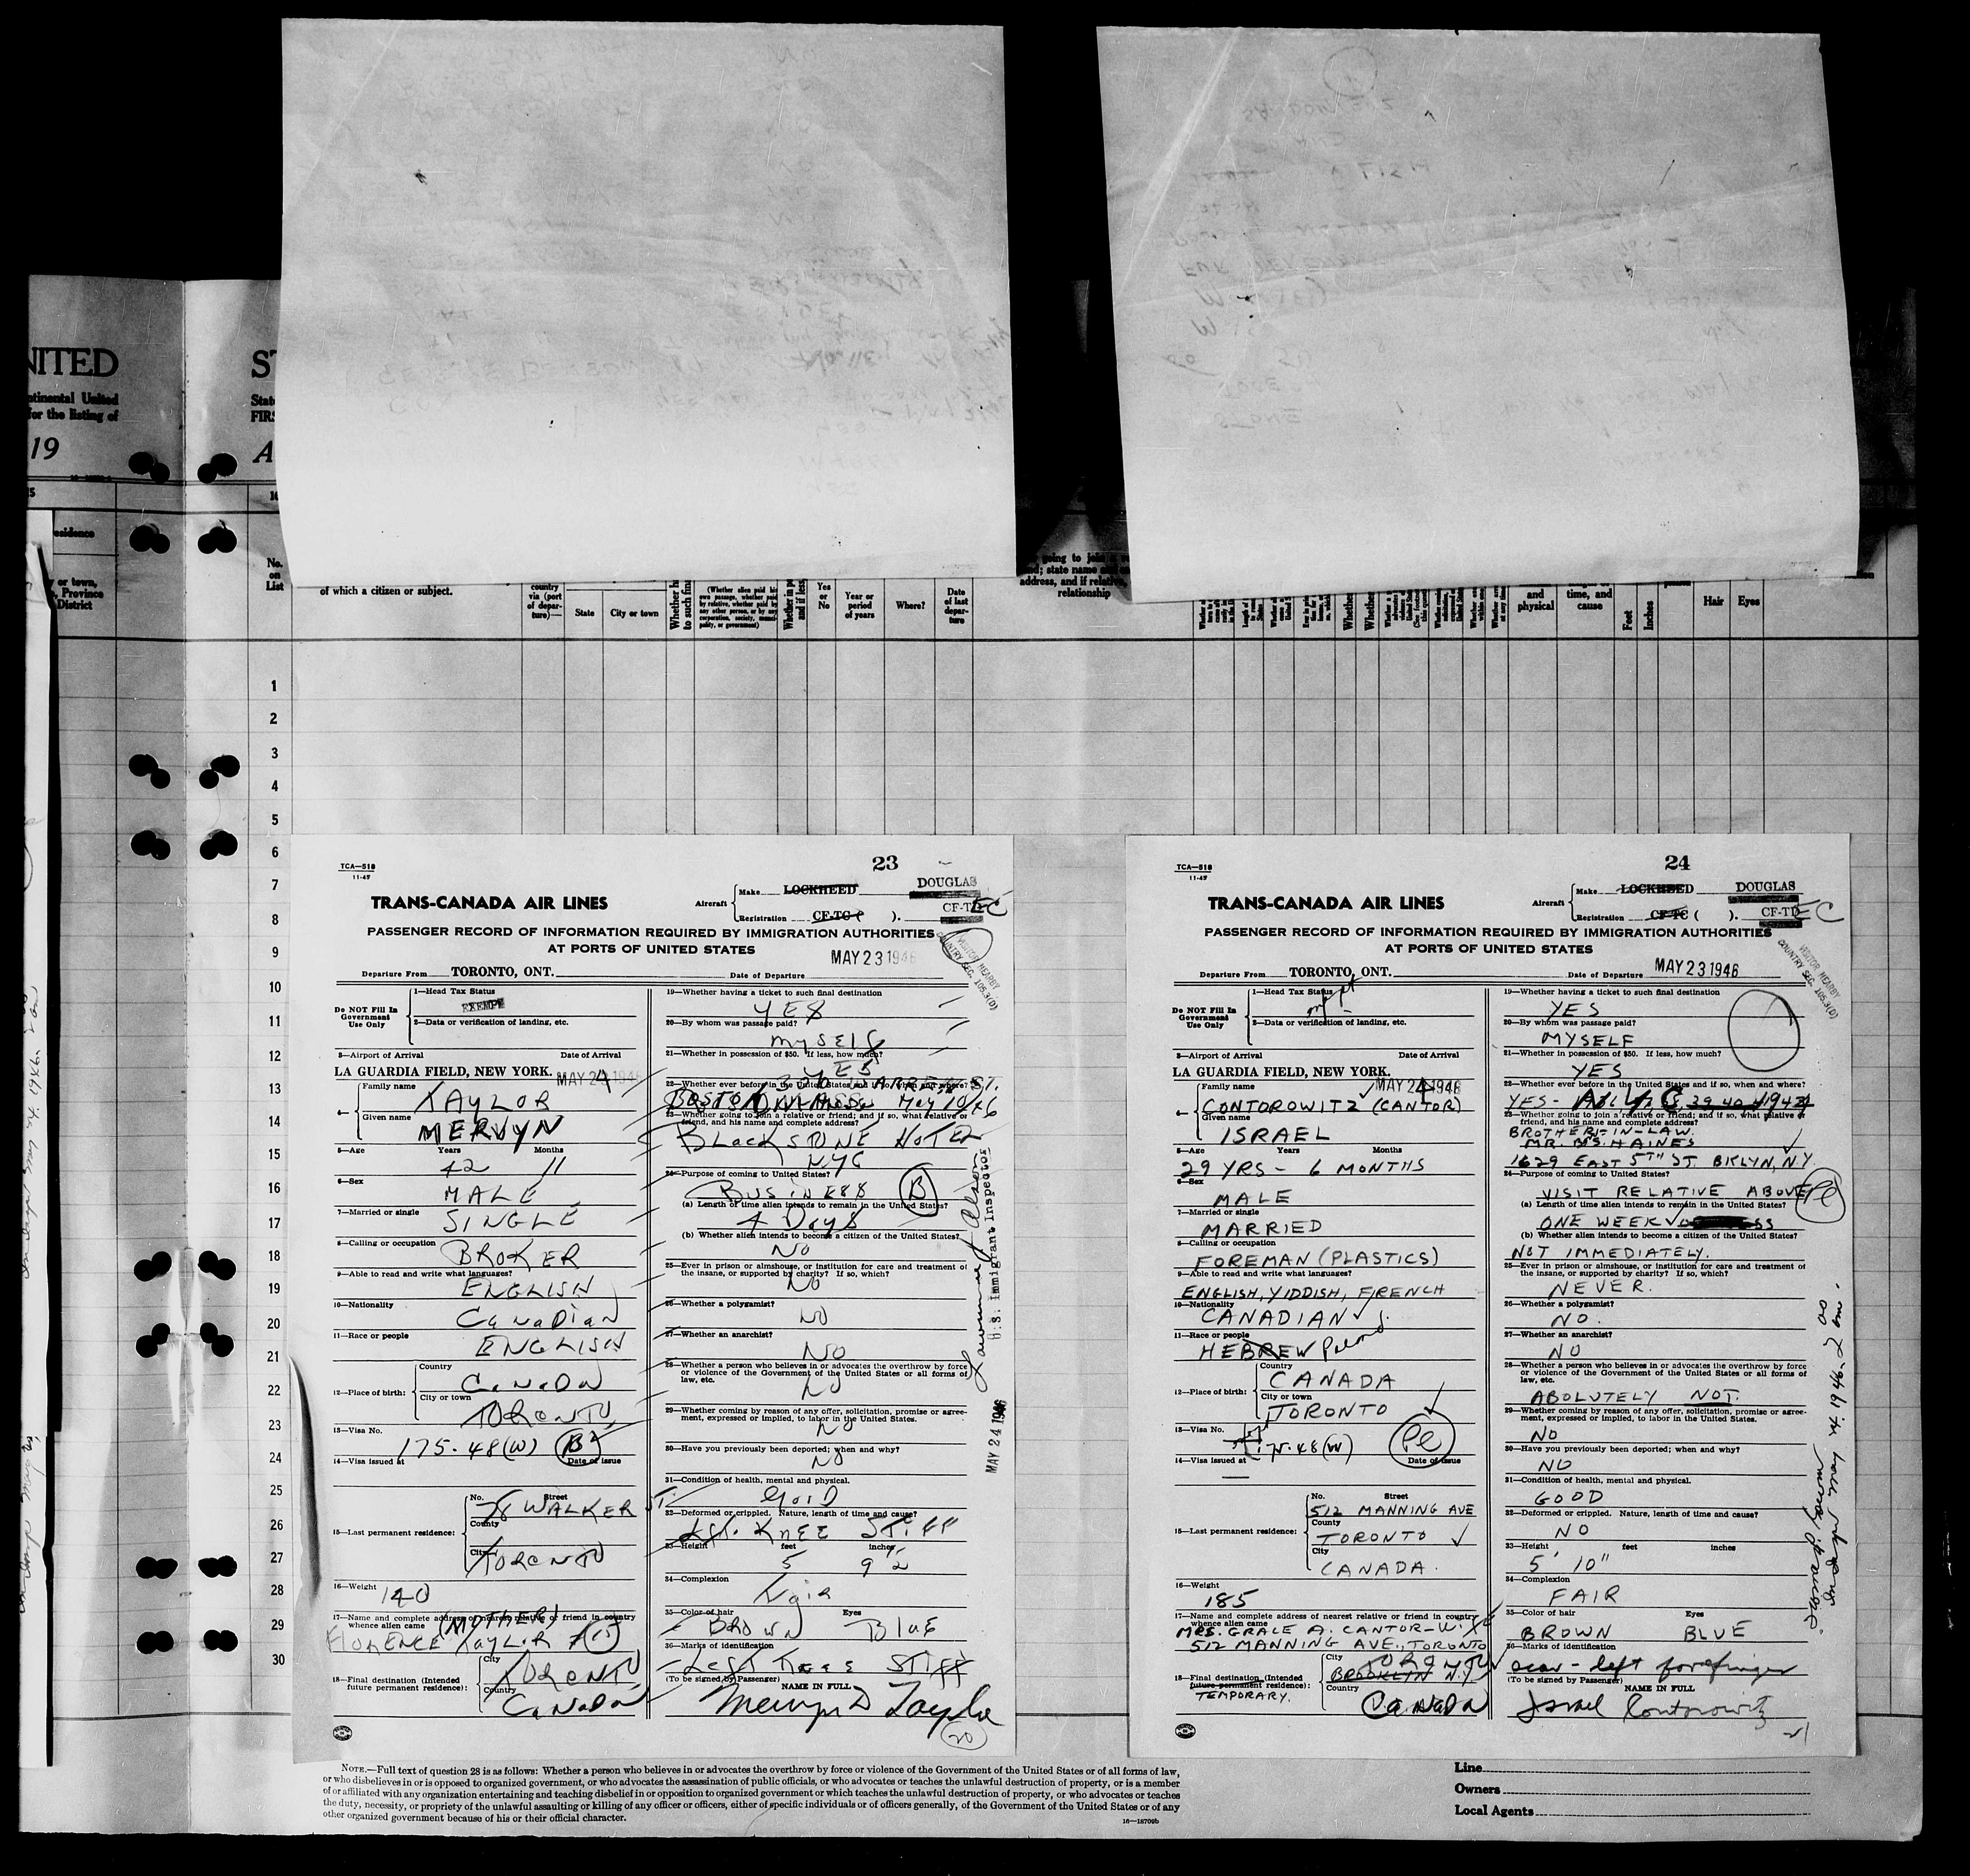 NITED
ST
ntinental United
for the listing of
State
FIRS
19
A
esidence
y or town,
, Province
District
No.
on
List
of which a citizen or subject.
country
via (port
of depar-
ture)—
State
City or town
(Whether alien paid his
own passage, whether paid
by relative, whether paid by
any other person, or by any
corporation, society, munici-
pality, or government)
Yes
or
No
Year or
period
of years
Where?
Date
of last
depar-
ture
going to join a
nd; state name
address, and if relative,
relationship
and
physical
time, and
cause
Feet
Inches
Hair
Eyes
1
2
3
4
5
6
7
8
9
10
11
12
13
14
15
16
17
18
19
20
21
22
23
24
25
26
27
28
29
30
TCA—518
11-45
23
TRANS-CANADA AIR LINES
Aircraft
Make LOCKHEED DOUGLAS
Registration CF-TC ( ). CF-TD EC
PASSENGER RECORD OF INFORMATION REQUIRED BY IMMIGRATION AUTHORITIES
AT PORTS OF UNITED STATES
MAY 23 1946
VISITOR NEARBY
COUNTRY SEC. 105.3(D)
Departure From TORONTO, ONT. Date of Departure
Do NOT Fill In
Government
Use Only
1—Head Tax Status
EXEMPT
2—Data or verification of landing, etc.
3—Airport of Arrival Date of Arrival
LA GUARDIA FIELD, NEW YORK. MAY 24 1946
4—
Family name
TAYLOR
Given name
MERVYN
5—Age Years Months
42 11
6—Sex
MALE
7—Married or single
SINGLE
8—Calling or occupation
BROKER
9—Able to read and write what languages?
ENGLISH
10—Nationality
CANADIAN
11—Race or people
ENGLISH
12—Place of birth:
Country
CANADA
City or town
TORONTO
13—Visa No.
175.48(W) B
14—Visa issued at Date of issue
15—Last permanent residence:
No. Street
78 WALKER ST.
County
City
TORONTO
16—Weight
140
17—Name and complete address of nearest relative or friend in country
whence alien came (MOTHER)
FLORENCE TAYLOR
18—Final destination (Intended
future permanent residence):
City
TORONTO
Country
CANADA
19—Whether having a ticket to such final destination
YES
20—By whom was passage paid?
MYSELF
21—Whether in possession of $50. If less, how much?
YES
22—Whether ever before in the United States and if so, when and where?
BOSTON MASS May 10/46
23—Whether going to join a relative or friend; and if so, what relative or
friend, and his name and complete address?
BLACKSTONE HOTEL
NYC
24—Purpose of coming to United States?
BUSINESS B
(a) Length of time alien intends to remain in the United States?
4 Days
(b) Whether alien intends to become a citizen of the United States?
NO
25—Ever in prison or almshouse, or institution for care and treatment of
the insane, or supported by charity? If so, which?
NO
26—Whether a polygamist?
NO
27—Whether an anarchist?
NO
28—Whether a person who believes in or advocates the overthrow by force
or violence of the Government of the United States or all forms of
law, etc.
NO
29—Whether coming by reason of any offer, solicitation, promise or agree-
ment, expressed or implied, to labor in the United States.
NO
30—Have you previously been deported; when and why?
NO
31—Condition of health, mental and physical.
GOOD
32—Deformed or crippled. Nature, length of time and cause?
Lft. KNEE STIFF
33—Height feet inches
5 9½
34—Complexion
Fair
35—Color of hair Eyes
BROWN BLUE
36—Marks of identification
Left Knee STIFF
(To be signed by Passenger) NAME IN FULL
Mervyn D Taylor
20
U.S. Immigrant Inspector
MAY 24 1946
TCA—518
11-45
24
TRANS-CANADA AIR LINES
Aircraft
Make LOCKHEED DOUGLAS
Registration CF-TC ( ). CF-TD EC
PASSENGER RECORD OF INFORMATION REQUIRED BY IMMIGRATION AUTHORITIES
AT PORTS OF UNITED STATES
MAY 23 1946
VISITOR NEARBY
COUNTRY SEC. 105.3(D)
Departure From TORONTO, ONT. Date of Departure
Do NOT Fill In
Government
Use Only
1—Head Tax Status
2—Data or verification of landing, etc.
3—Airport of Arrival Date of Arrival
LA GUARDIA FIELD, NEW YORK. MAY 24 1946
4—
Family name
CONTOROWITZ (CANTOR)
Given name
ISRAEL
5—Age Years Months
29 YRS - 6 MONTHS
6—Sex
MALE
7—Married or single
MARRIED
8—Calling or occupation
FOREMAN (PLASTICS)
9—Able to read and write what languages?
ENGLISH, YIDDISH, FRENCH
10—Nationality
CANADIAN
11—Race or people
HEBREW
12—Place of birth:
Country
CANADA
City or town
TORONTO
13—Visa No.
175.48(W) Pl
14—Visa issued at Date of issue
15—Last permanent residence:
No. Street
512 MANNING AVE
County
TORONTO
City
CANADA.
16—Weight
185
17—Name and complete address of nearest relative or friend in country
whence alien came
MRS. GRACE A. CANTOR-W.
512 MANNING AVE., TORONTO
18—Final destination (Intended
future permanent residence):
TEMPORARY.
City
TORONTO
BROOKLYN N.Y.
Country
CANADA
19—Whether having a ticket to such final destination
YES
20—By whom was passage paid?
MYSELF
21—Whether in possession of $50. If less, how much?
YES
22—Whether ever before in the United States and if so, when and where?
YES- N.Y.C. 39 40 41 1942
23—Whether going to join a relative or friend; and if so, what relative or
friend, and his name and complete address?
BROTHER-IN-LAW.
MR. B.S. HAINES
1629 EAST 5TH ST. BKLYN, N.Y.
24—Purpose of coming to United States?
VISIT RELATIVE ABOVE Pl
(a) Length of time alien intends to remain in the United States?
ONE WEEK
(b) Whether alien intends to become a citizen of the United States?
NOT IMMEDIATELY.
25—Ever in prison or almshouse, or institution for care and treatment of
the insane, or supported by charity? If so, which?
NEVER.
26—Whether a polygamist?
NO.
27—Whether an anarchist?
NO
28—Whether a person who believes in or advocates the overthrow by force
or violence of the Government of the United States or all forms of
law, etc.
ABOLUTELY NOT.
29—Whether coming by reason of any offer, solicitation, promise or agree-
ment, expressed or implied, to labor in the United States.
NO
30—Have you previously been deported; when and why?
NO
31—Condition of health, mental and physical.
GOOD
32—Deformed or crippled. Nature, length of time and cause?
NO
33—Height feet inches
5' 10"
34—Complexion
FAIR
35—Color of hair Eyes
BROWN BLUE
36—Marks of identification
scar - left forefinger
(To be signed by Passenger) NAME IN FULL
Israel Contorowitz
21
May 24. 1946
NOTE.—Full text of question 28 is as follows: Whether a person who believes in or advocates the overthrow by force or violence of the Government of the United States or of all forms of law,
or who disbelieves in or is opposed to organized government, or who advocates the assassination of public officials, or who advocates or teaches the unlawful destruction of property, or is a member
of or affiliated with any organization entertaining and teaching disbelief in or opposition to organized government or which teaches the unlawful destruction of property, or who advocates or teaches
the duty, necessity, or propriety of the unlawful assaulting or killing of any officer or officers, either of specific individuals or of officers generally, of the Government of the United States or of any
other organized government because of his or their official character.
16—18709b
Line
Owners
Local Agents